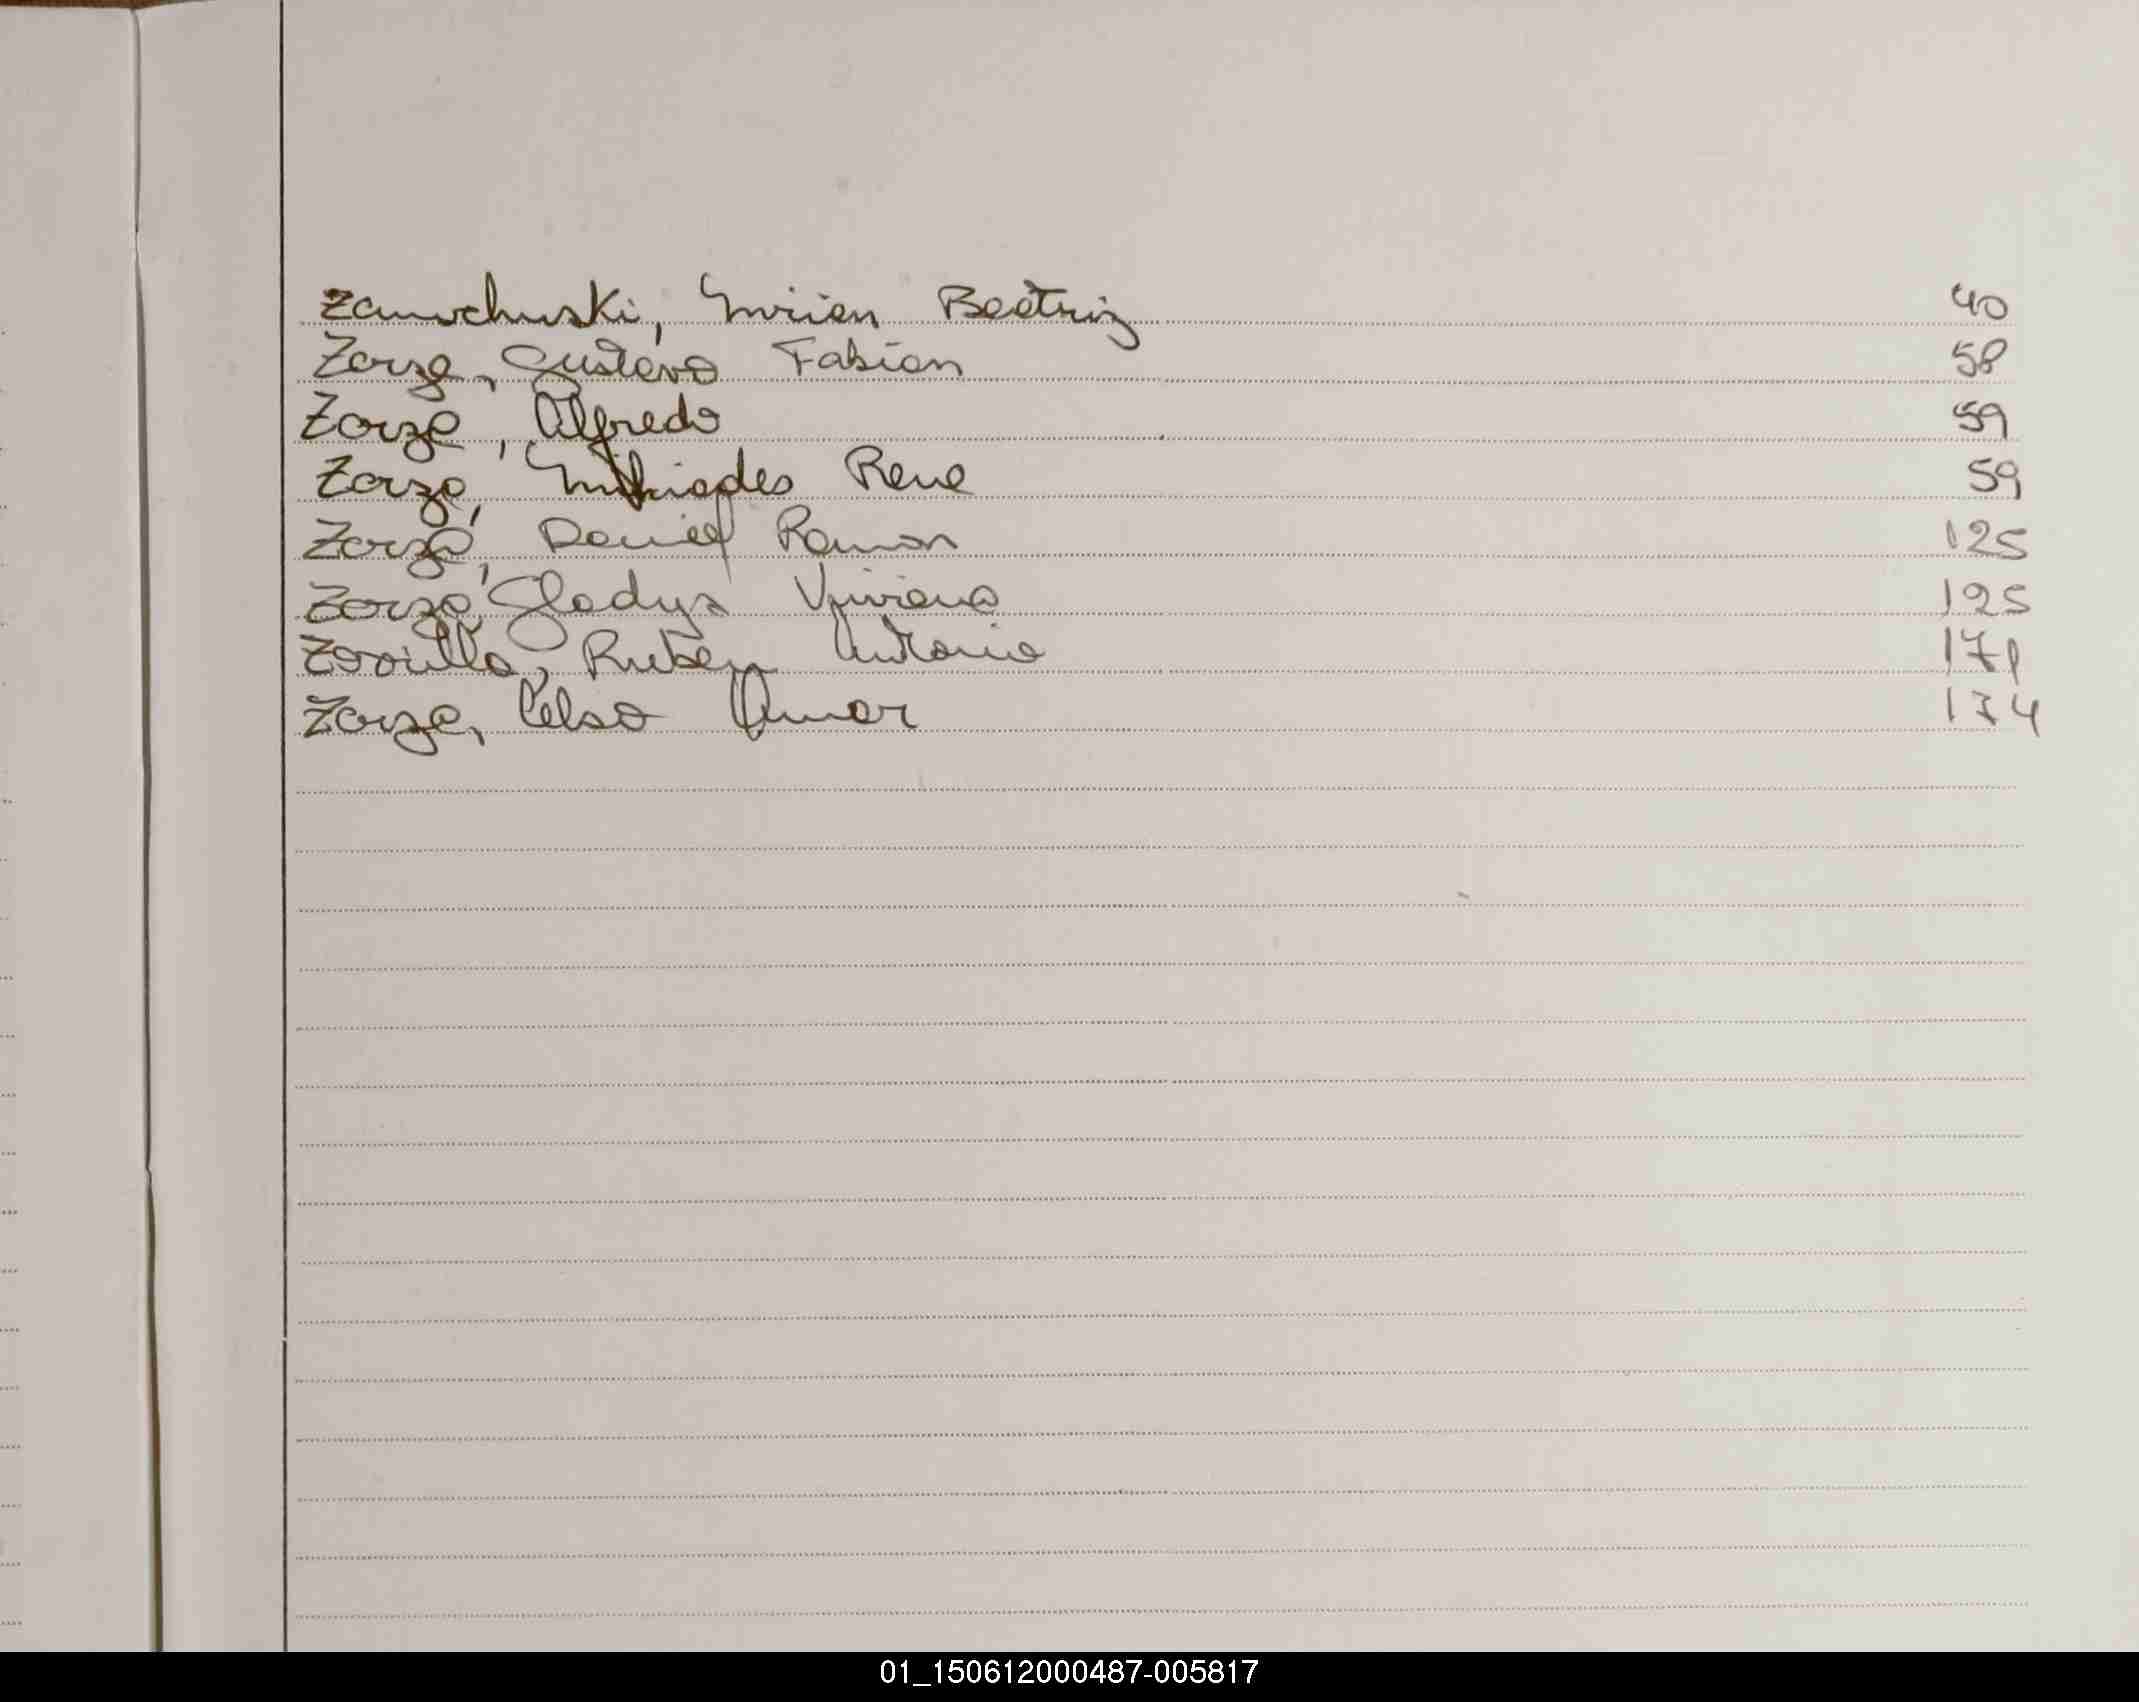 Zamchuski, Mirian Beatriz 40
Zorza, Gustavo Fabian 58
Zorza, Alfredo 59
Zorza, Milciades Rene 59
Zorza, Daniel Ramon 125
Zorza, Gladys Viviana 125
Zorrilla, Ruben Antonio 171
Zorza, Celso Omar 174
01_150612000487-005817